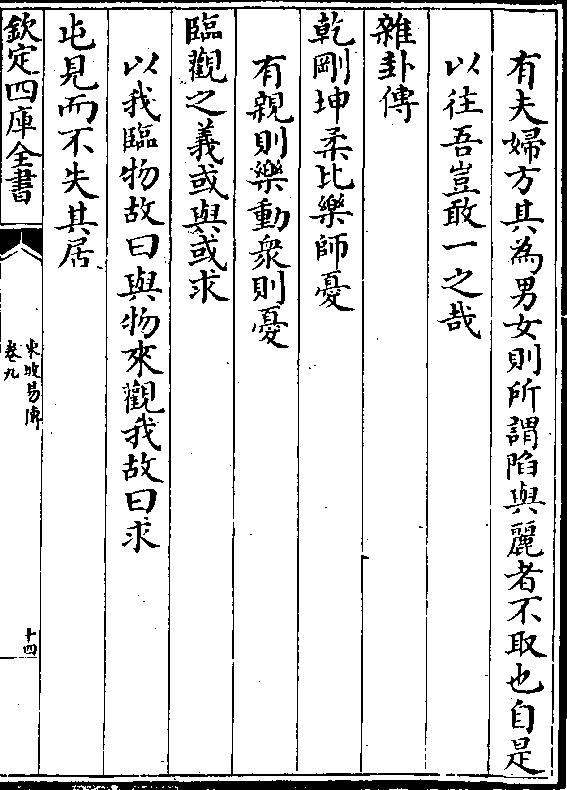 有夫婦方其為男女則所謂陷與麗者不取也自是
以往吾豈敢一之哉
雜卦傳
乾剛坤柔比樂師憂
有親則樂動衆則憂
臨觀之義或與或求
以我臨物故曰與物來觀我故曰求
屯見而不失其居
欽定四庫全書
東坡易傳
卷九
十四